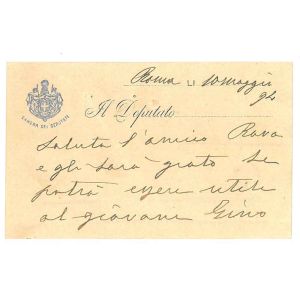 Roma LI 10 maggio
94
CAMERA DEI DEPUTATI
Il Deputato
saluta l'amico Rava
e gli sarà grato se
potrà essere utile
al giovane Gino